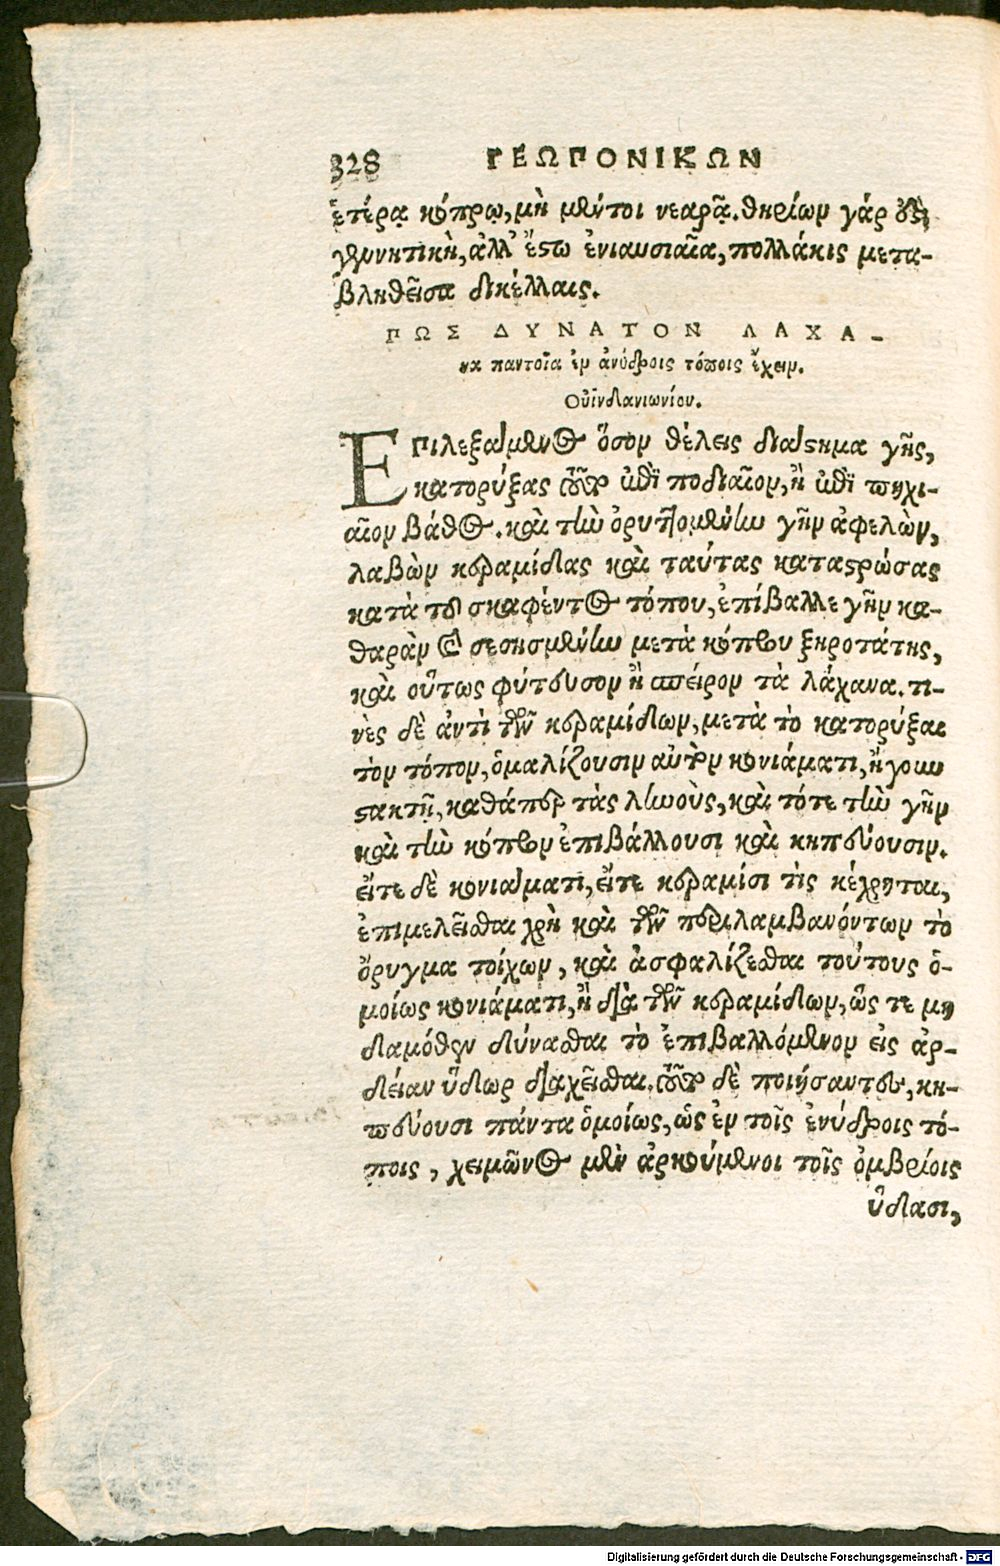 328 ΓΕΩΠΟΝΙΚΩΝ
ἑτέρᾳ κόπρῳ, μὴ μέντοι νεαρᾷ. θηρίων γάρ ἐστι
γεννητικὴ, ἀλλ' ἔστω ἐνιαυσιαῖα, πολλάκις μετα-
βληθεῖσα δικέλλαις.
ΠΩΣ ΔΥΝΑΤΟΝ ΛΑΧΑ-
να παντοῖα ἐν ἀνύδροις τόποις ἔχειν.
Οὐϊνδανιωνίου.
ΕΠιλεξάμενος ὅσον θέλεις διάστημα γῆς,
κατορύξας οὖν ἐπὶ ποδιαῖον, ἢ ἐπὶ πηχι-
αῖον βάθος. καὶ τὴν ὀρυττομένην γῆν ἀφελὼν,
λαβὼν κεραμίδας καὶ ταύτας καταστρώσας
κατὰ τοῦ σκαφέντος τόπου, ἐπίβαλλε γῆν κα-
θαρὰν καὶ σεσησμένην μετὰ κόπρου ξηροτάτης,
καὶ οὕτως φύτευσον ἢ σπεῖρον τὰ λάχανα. τι-
νὲς δὲ ἀντὶ τῶν κεραμίδων, μετὰ τὸ κατορύξαι
τὸν τόπον, ὁμαλίζουσιν αὐτὸν κονιάματι, ἤγουν
στακτῇ, καθάπερ τὰς ληνοὺς, καὶ τότε τὴν γῆν
καὶ τὴν κόπρον ἐπιβάλλουσι καὶ κηπεύουσιν.
εἴτε δὲ κονιάματι, εἴτε κεραμίσι τὶς κέχρηται,
ἐπιμελεῖσθαι χρὴ καὶ τῶν περιλαμβανόντων τὸ
ὄρυγμα τοίχων, καὶ ἀσφαλίζεσθαι τούτους ὁ-
μοίως κονιάματι, ἢ διὰ τῶν κεραμίδων, ὥς τε μη
δαμόθεν δύνασθαι τὸ ἐπιβαλλόμενον εἰς ἀρ-
δείαν ὕδωρ διαχεῖσθαι. οὖν δὲ ποιήσαντες, κη-
πεύουσι πάντα ὁμοίως, ὡς ἐν τοῖς ἐνύδροις τό-
ποις, χειμῶνος μὲν ἀρκούμενοι τοῖς ὀμβρίοις
ὕδασι,
Digitalisierung gefördert durch die Deutsche Forschungsgemeinschaft - DFG